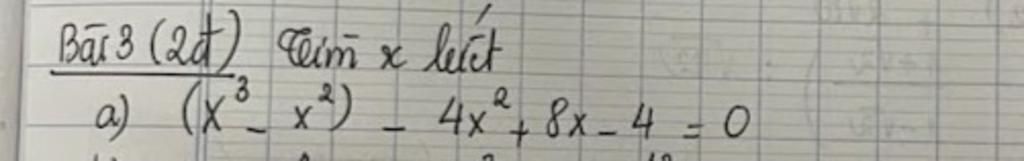 Bài 3 (2đ) Tìm x biết
a) (x³ - x²) - 4x² + 8x - 4 = 0